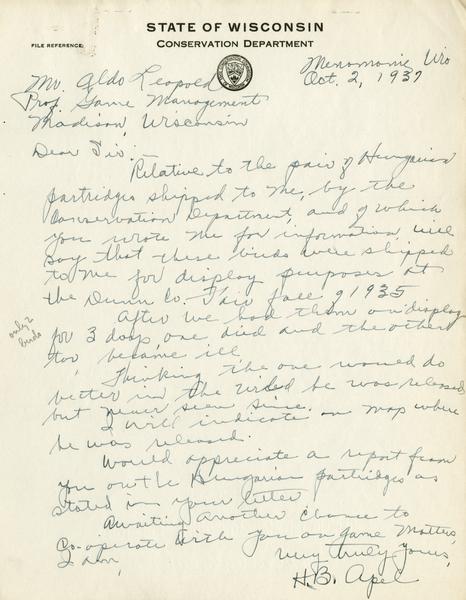 STATE OF WISCONSIN
CONSERVATION DEPARTMENT
FILE REFERENCE:
Menomonie, Wis
Oct. 2, 1937
Mr. Aldo Leopold
Prof. Game Management
Madison, Wisconsin
Dear Sir:-
Relative to the pair of Hungarian
partridges shipped to me, by the
Conservation Department, and of which
you wrote me for information will
say that these birds were shipped
to me for display purposes at
the Dunn Co. Fair fall of 1935
After we had them on display
for 3 days one died and the other
too, became ill.
only 2
birds
Thinking the one would do
better in the wild he was released
but never seen since.
I will indicate on map where
he was released.
Would appreciate a report from
you on the Hungarian partridges as
stated in your letter
Awaiting another chance to
Co-operate with you on game matters,
I am,
Very truly yours,
H.B. Apel